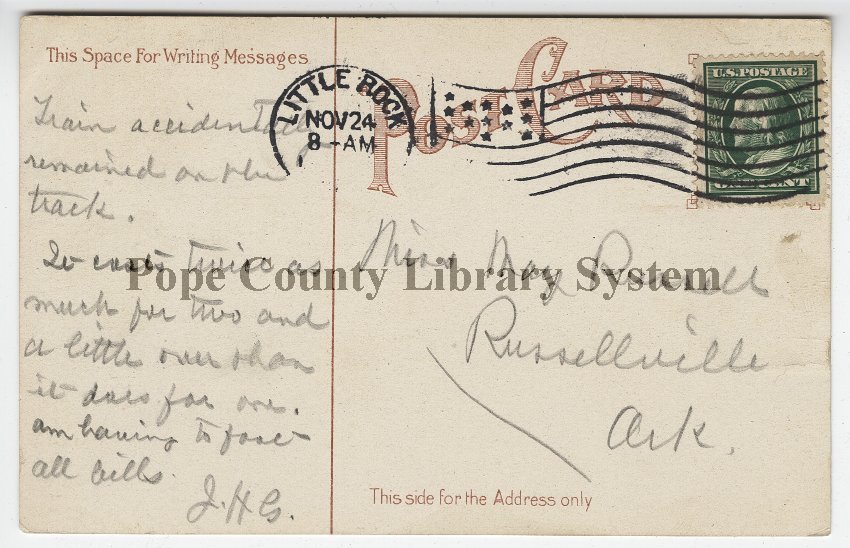 This Space For Writing Messages
POST CARD
LITTLE ROCK
NOV 24
8-AM
U.S. POSTAGE
ONE CENT
Train accidentally
remained on the
track.
It costs twice as
much for two and
a little over than
it does for one.
am having to foot
all bills.
J.H.G.
Miss May Russell
Russellville
Ark.
This side for the Address only
Pope County Library System